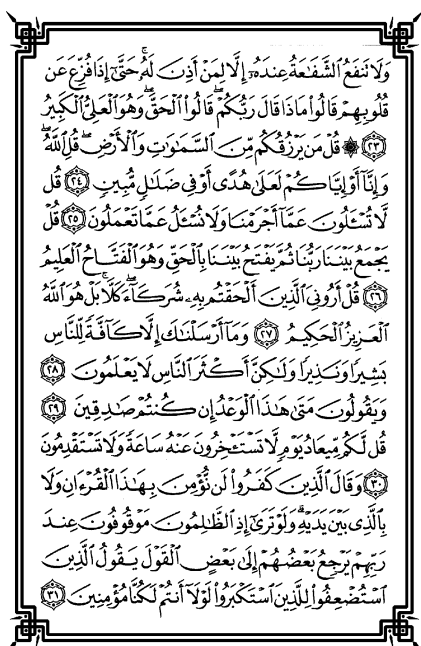 وَلَا تَنفَعُ ٱلشَّفَٰعَةُ عِندَهُۥٓ إِلَّا لِمَنْ أَذِنَ لَهُۥ ۚ حَتَّىٰٓ إِذَا فُزِّعَ عَن
قُلُوبِهِمْ قَالُوا۟ مَاذَا قَالَ رَبُّكُمْ ۖ قَالُوا۟ ٱلْحَقَّ ۖ وَهُوَ ٱلْعَلِىُّ ٱلْكَبِيرُ
﴿٢٣﴾ ۞ قُلْ مَن يَرْزُقُكُم مِّنَ ٱلسَّمَٰوَٰتِ وَٱلْأَرْضِ ۖ قُلِ ٱللَّهُ ۖ
وَإِنَّآ أَوْ إِيَّاكُمْ لَعَلَىٰ هُدًى أَوْ فِى ضَلَٰلٍ مُّبِينٍ ﴿٢٤﴾ قُل
لَّا تُسْـَٔلُونَ عَمَّآ أَجْرَمْنَا وَلَا نُسْـَٔلُ عَمَّا تَعْمَلُونَ ﴿٢٥﴾ قُلْ
يَجْمَعُ بَيْنَنَا رَبُّنَا ثُمَّ يَفْتَحُ بَيْنَنَا بِٱلْحَقِّ وَهُوَ ٱلْفَتَّاحُ ٱلْعَلِيمُ
﴿٢٦﴾ قُلْ أَرُونِىَ ٱلَّذِينَ أَلْحَقْتُم بِهِۦ شُرَكَآءَ ۖ كَلَّا ۚ بَلْ هُوَ ٱللَّهُ
ٱلْعَزِيزُ ٱلْحَكِيمُ ﴿٢٧﴾ وَمَآ أَرْسَلْنَٰكَ إِلَّا كَآفَّةً لِّلنَّاسِ
بَشِيرًا وَنَذِيرًا وَلَٰكِنَّ أَكْثَرَ ٱلنَّاسِ لَا يَعْلَمُونَ ﴿٢٨﴾
وَيَقُولُونَ مَتَىٰ هَٰذَا ٱلْوَعْدُ إِن كُنتُمْ صَٰدِقِينَ ﴿٢٩﴾
قُل لَّكُم مِّيعَادُ يَوْمٍ لَّا تَسْتَـْٔخِرُونَ عَنْهُ سَاعَةً وَلَا تَسْتَقْدِمُونَ
﴿٣٠﴾ وَقَالَ ٱلَّذِينَ كَفَرُوا۟ لَن نُّؤْمِنَ بِهَٰذَا ٱلْقُرْءَانِ وَلَا
بِٱلَّذِى بَيْنَ يَدَيْهِ ۗ وَلَوْ تَرَىٰٓ إِذِ ٱلظَّٰلِمُونَ مَوْقُوفُونَ عِندَ
رَبِّهِمْ يَرْجِعُ بَعْضُهُمْ إِلَىٰ بَعْضٍ ٱلْقَوْلَ يَقُولُ ٱلَّذِينَ
ٱسْتُضْعِفُوا۟ لِلَّذِينَ ٱسْتَكْبَرُوا۟ لَوْلَآ أَنتُمْ لَكُنَّا مُؤْمِنِينَ ﴿٣١﴾